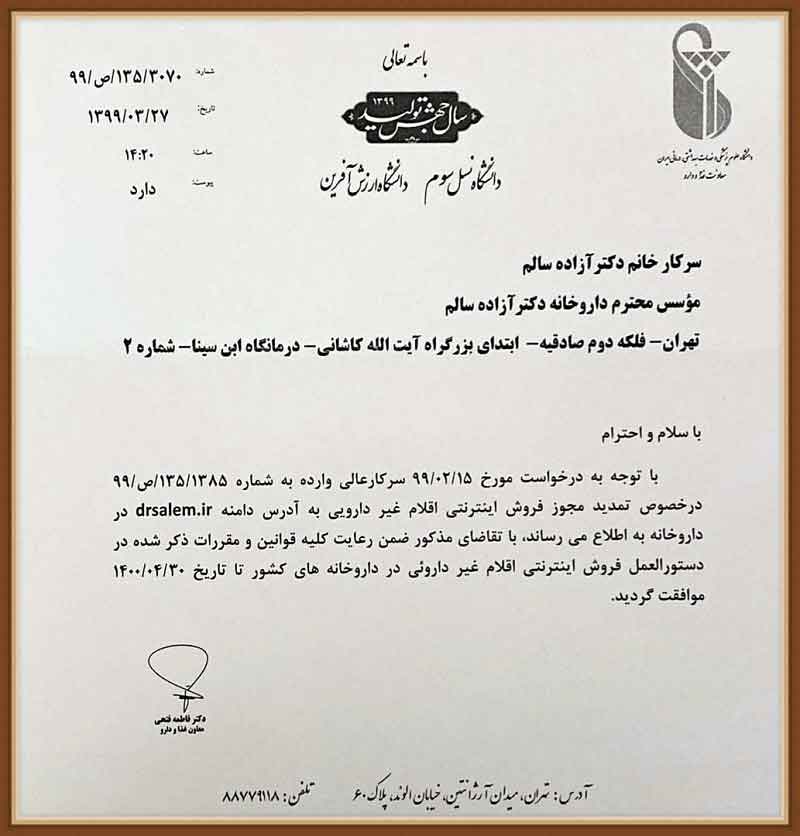 باسمه تعالی
سال جهش تولید
۱۳۹۹
دانشگاه نسل سوم دانشگاه ارزش آفرین
دانشگاه علوم پزشکی و خدمات بهداشتی درمانی ایران
معاونت غذا و دارو
شماره: ۹۹/ص/۱۳۵/۳۰۷۰
تاریخ: ۱۳۹۹/۰۳/۲۷
ساعت: ۱۴:۲۰
پیوست: دارد
سرکار خانم دکتر آزاده سالم
مؤسس محترم داروخانه دکتر آزاده سالم
تهران- فلکه دوم صادقیه- ابتدای بزرگراه آیت الله کاشانی- درمانگاه ابن سینا- شماره ۲
با سلام و احترام
با توجه به درخواست مورخ ۹۹/۰۲/۱۵ سرکارعالی وارده به شماره ۹۹/ص/۱۳۵/۱۳۸۵
درخصوص تمدید مجوز فروش اینترنتی اقلام غیر دارویی به آدرس دامنه drsalem.ir در
داروخانه به اطلاع می رساند، با تقاضای مذکور ضمن رعایت کلیه قوانین و مقررات ذکر شده در
دستورالعمل فروش اینترنتی اقلام غیر داروئی در داروخانه های کشور تا تاریخ ۱۴۰۰/۰۴/۳۰
موافقت گردید.
دکتر فاطمه فتحی
معاون غذا و دارو
آدرس: تهران، میدان آرژانتین، خیابان الوند، پلاک ۶۰ تلفن: ۸۸۷۷۹۱۱۸